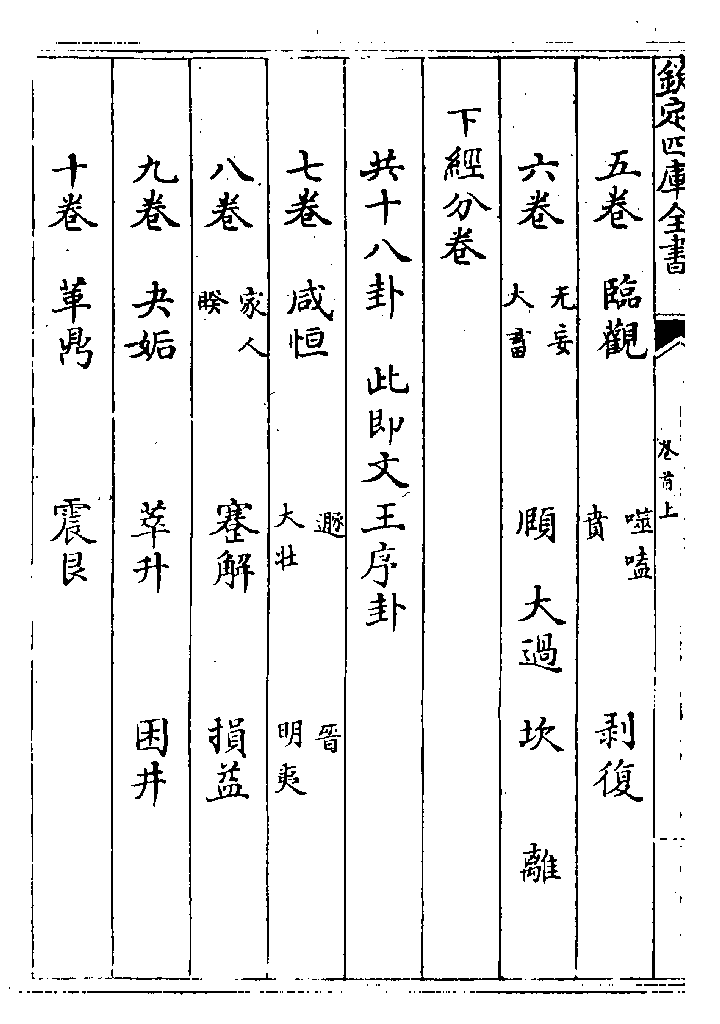 欽定四庫全書
卷首上
五卷 臨觀 噬嗑 賁 剥復
六卷 无妄 大畜 頤 大過 坎 離
下經分卷
共十八卦 此即文王序卦
七卷 咸恒 遯 大壯 晉 明夷
八卷 家人 睽 蹇解 損益
九卷 夬姤 萃升 困井
十卷 革鼎 震艮